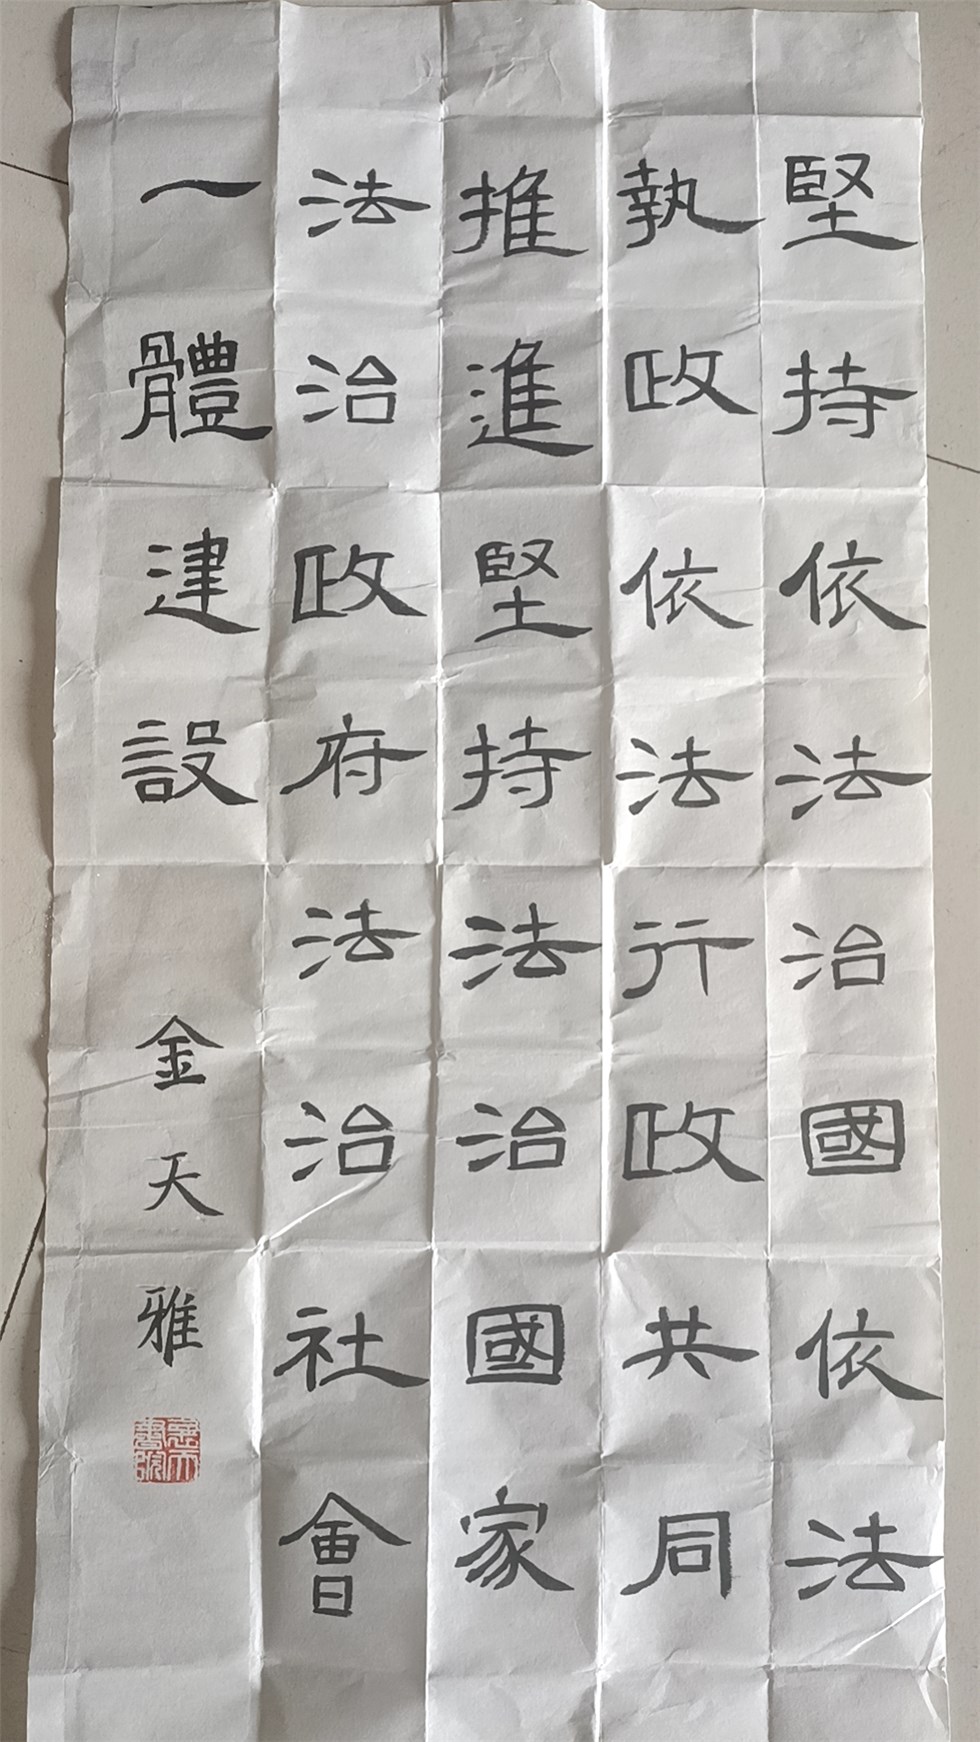 堅持依法治國依法
執政依法行政共同
推進堅持法治國家
法治政府法治社會
一體建設
金天雅